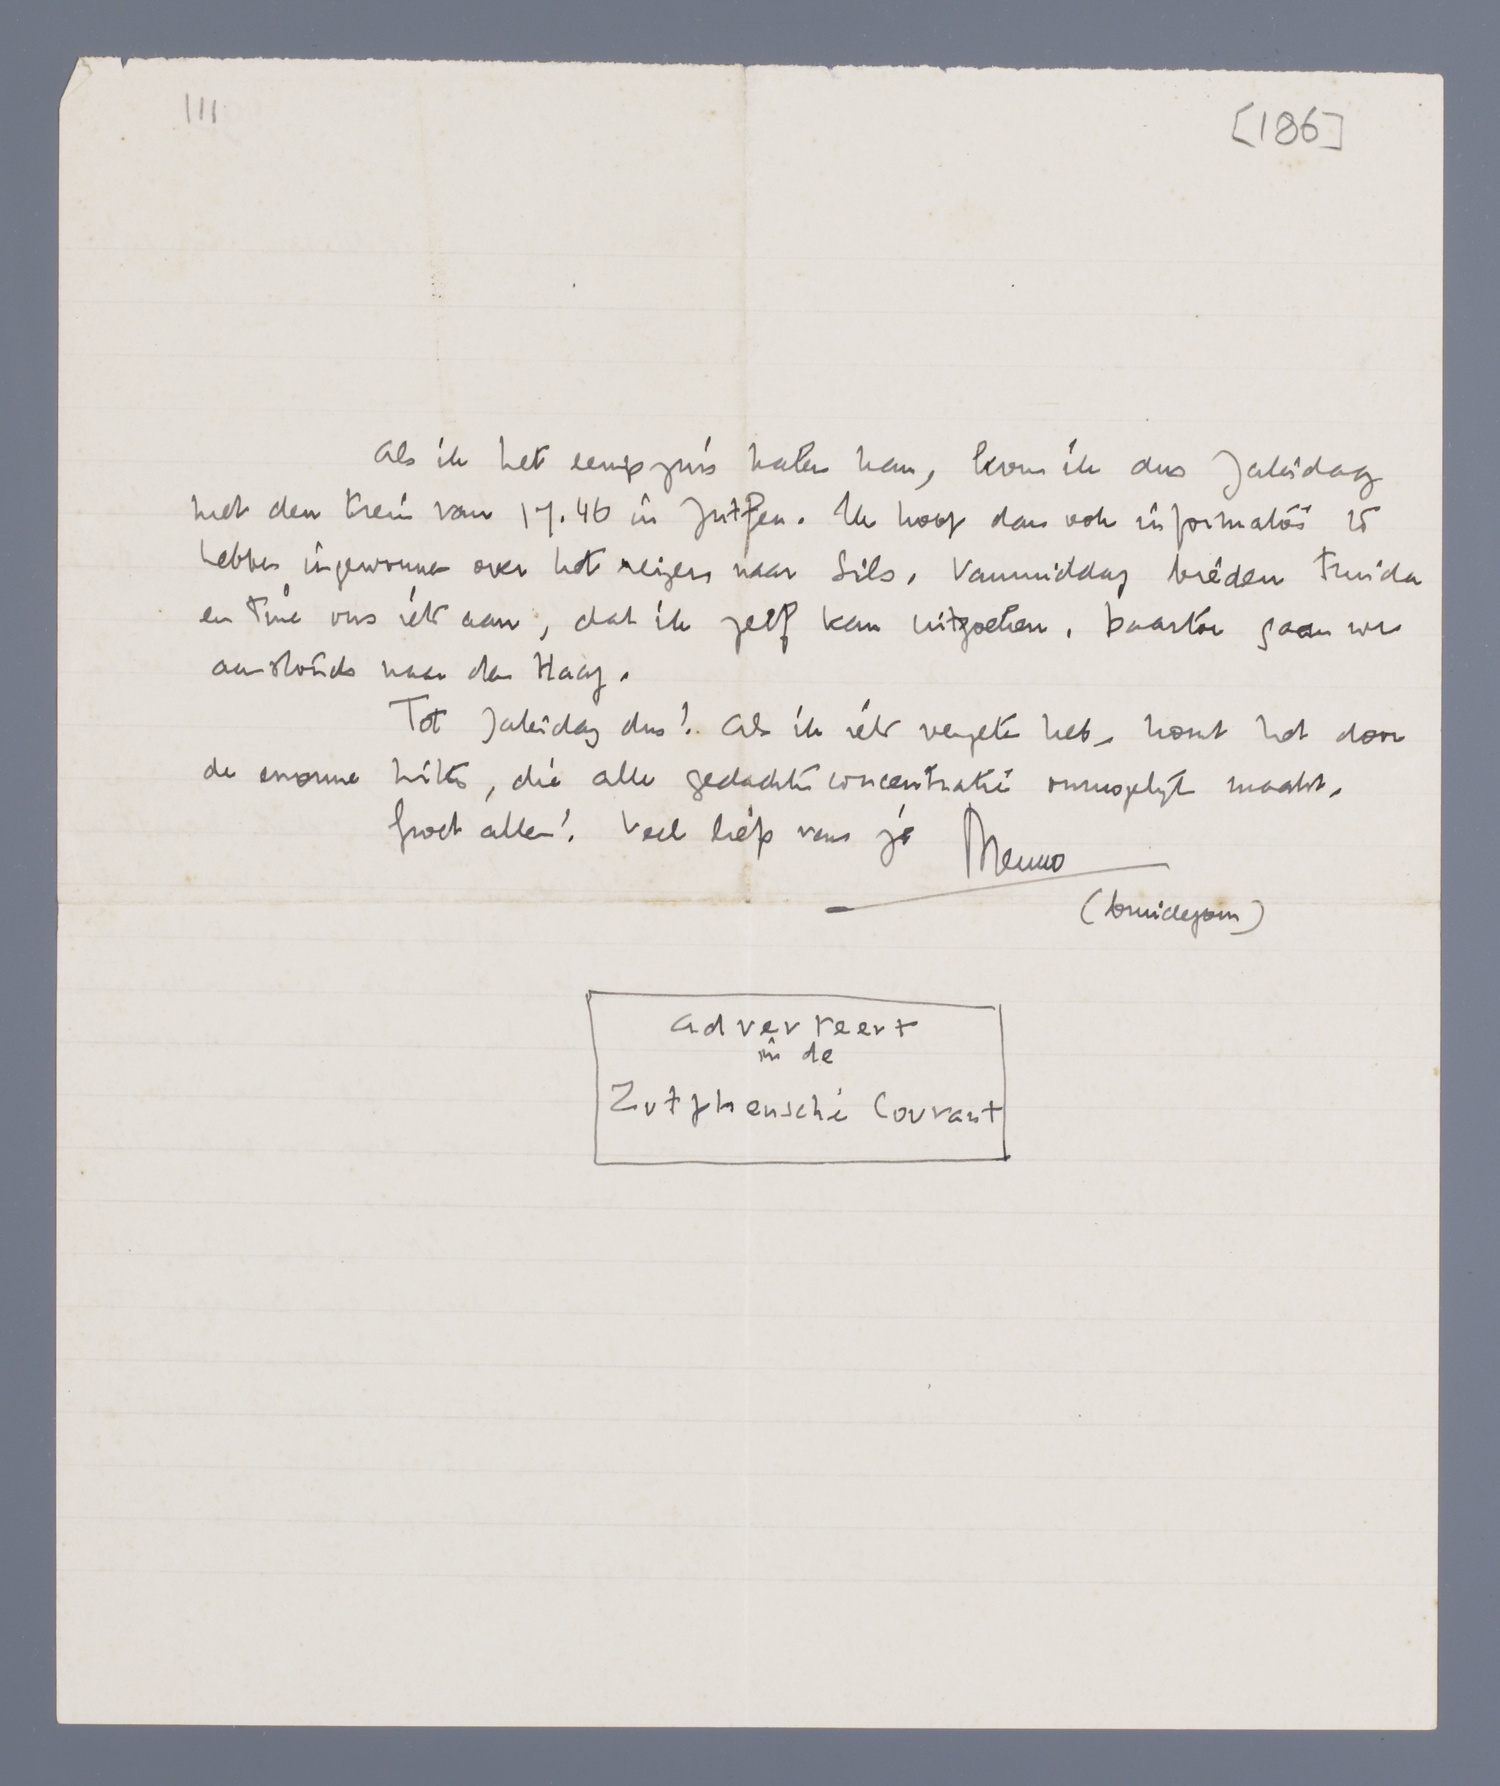 III
[186]
Als ik het eenigszins halen kan, kom ik dus Zaterdag
met den trein van 17.46 in Zutfen. Ik hoop dan ook informaties te
hebben ingewonnen over het reizen naar Sils. Vanmiddag bieden Truida
en Tine ons iets aan, dat ik zelf kan uitzoeken. Daartoe gaan we
aanstonds naar den Haag.
Tot Zaterdag dus! Als ik iets vergeten heb, komt het door
de enorme hitte, die alle gedachtenconcentratie onmogelijk maakt.
Groet allen! Veel liefs van je Menno
(bruidegom)
Adverteert
in de
Zutphensche Courant